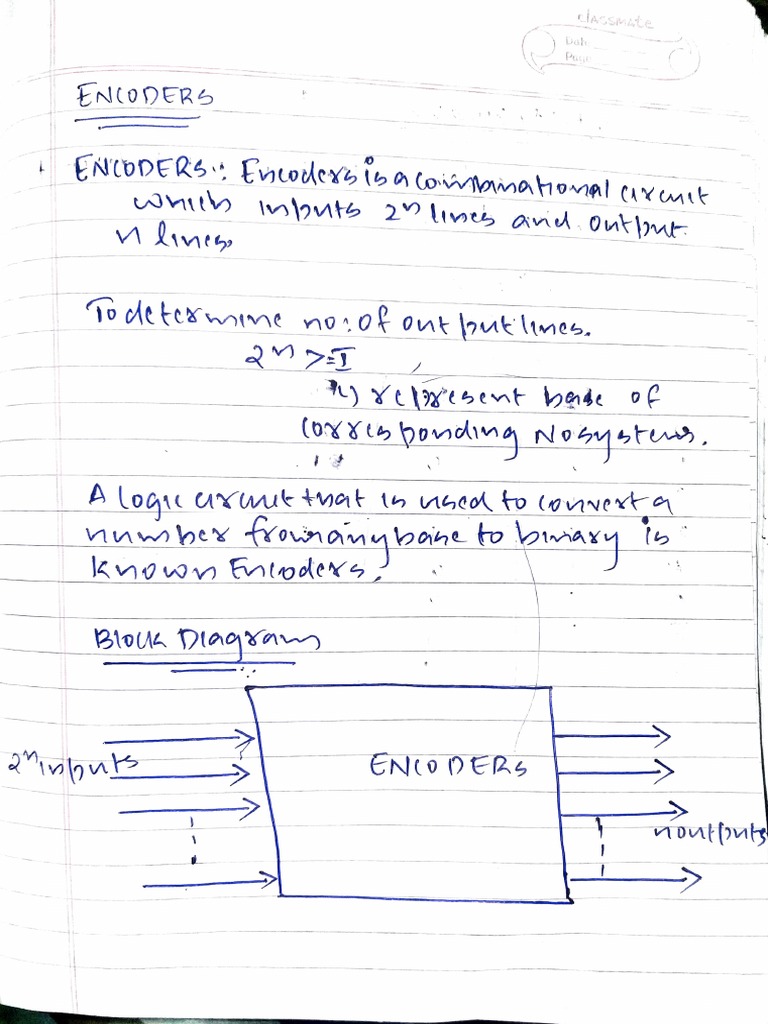 classmate
Date
Page
ENCODERS
ENCODERS:: Encoders is a combinational circuit
which inputs 2ⁿ lines and output
n lines.
To determine no: of output lines.
2ⁿ >= I
represent base of
corresponding No system.
A logic circuit that is used to convert a
number from any base to binary is
known Encoders.
Block Diagram
2ⁿ inputs
ENCODERS
n outputs